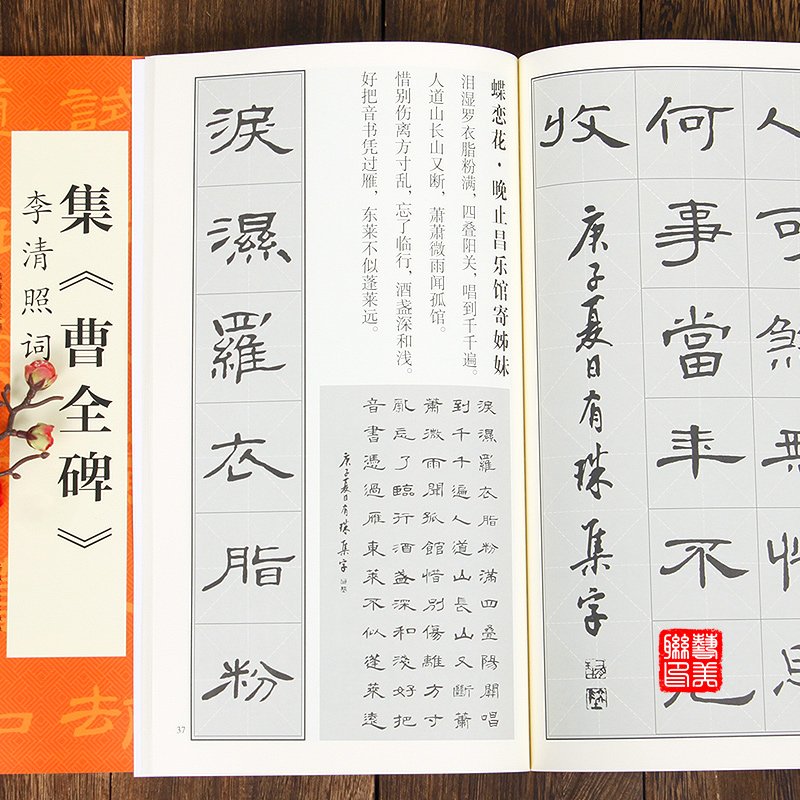 集《曹全碑》
李清照词
蝶恋花·晚止昌乐馆寄姊妹
泪湿罗衣脂粉满，四叠阳关，唱到千千遍。
人道山长山又断，萧萧微雨闻孤馆。
惜别伤离方寸乱，忘了临行，酒盏深和浅。
好把音书凭过雁，东莱不似蓬莱远。
淚濕羅衣脂粉
淚濕羅衣脂粉滿四疊陽關唱
到千千遍人道山長山又斷蕭
蕭微雨聞孤館惜別傷離方寸
亂忘了臨行酒盞深和淺好把
音書憑過雁東萊不似蓬萊遠
庚子夏日有珠集字
37
人可煞無
何事當年不見
收
庚子夏日有珠集字
藝美